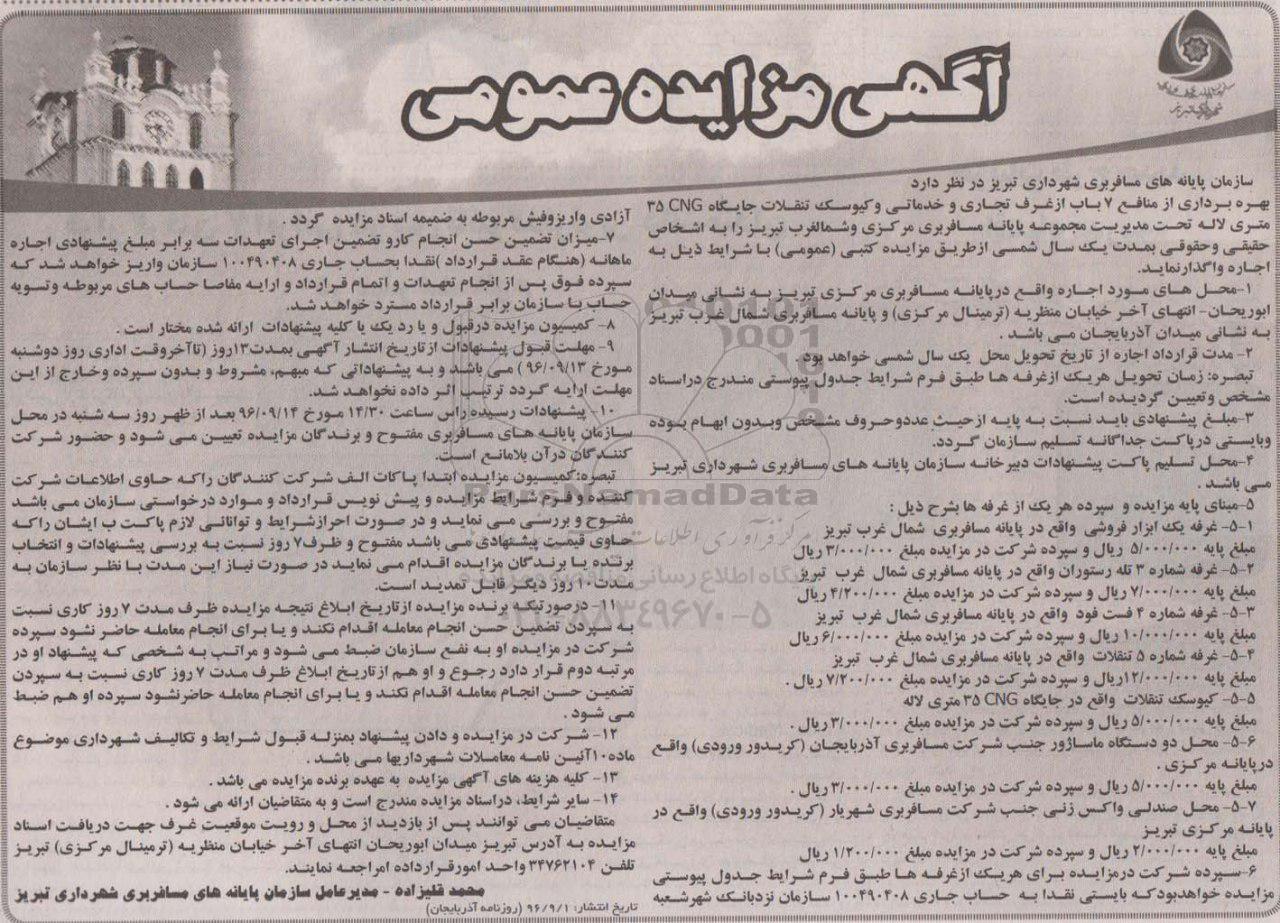 آگهی مزایده عمومی
سازمان پایانه های مسافربری شهرداری تبریز در نظر دارد
بهره برداری از منافع ۷ باب ازغرف تجاری و خدماتی وکیوسک تنقلات جایگاه CNG ۳۵
متری لاله تحت مدیریت مجموعه پایانه مسافربری مرکزی وشمالغرب تبریز را به اشخاص
حقیقی وحقوقی بمدت یک سال شمسی ازطریق مزایده کتبی (عمومی) با شرایط ذیل به
اجاره واگذارنماید.
۱-محل های مورد اجاره واقع درپایانه مسافربری مرکزی تبریز به نشانی میدان
ابوریحان- انتهای آخر خیابان منظریه (ترمینال مرکزی) و پایانه مسافربری شمال غرب تبریز
به نشانی میدان آذربایجان می باشد .
۲- مدت قرارداد اجاره از تاریخ تحویل محل یک سال شمسی خواهد بود .
تبصره: زمان تحویل هریک ازغرفه ها طبق فرم شرایط جدول پیوستی مندرج دراسناد
مشخص وتعیین گردیده است.
۳-مبلغ پیشنهادی باید نسبت به پایه ازحیث عددوحروف مشخص وبدون ابهام بوده
وبایستی درپاکت جداگانه تسلیم سازمان گردد.
۴-محل تسلیم پاکت پیشنهادات دبیرخانه سازمان پایانه های مسافربری شهرداری تبریز
می باشد .
۵-مبنای پایه مزایده و سپرده هر یک از غرفه ها بشرح ذیل :
۵-۱- غرفه یک ابزار فروشی واقع در پایانه مسافربری شمال غرب تبریز
مبلغ پایه ۵/۰۰۰/۰۰۰ ریال و سپرده شرکت در مزایده مبلغ ۳/۰۰۰/۰۰۰ ریال
۵-۲- غرفه شماره ۳ تله رستوران واقع در پایانه مسافربری شمال غرب تبریز
مبلغ پایه ۷/۰۰۰/۰۰۰ ریال و سپرده شرکت در مزایده مبلغ ۴/۲۰۰/۰۰۰ ریال
۵-۳- غرفه شماره ۴ فست فود واقع در پایانه مسافربری شمال غرب تبریز
مبلغ پایه ۱۰/۰۰۰/۰۰۰ ریال و سپرده شرکت در مزایده مبلغ ۶/۰۰۰/۰۰۰ ریال
۵-۴- غرفه شماره ۵ تنقلات واقع در پایانه مسافربری شمال غرب تبریز
مبلغ پایه ۱۲/۰۰۰/۰۰۰ریال و سپرده شرکت در مزایده مبلغ ۷/۲۰۰/۰۰۰ ریال .
۵-۵- کیوسک تنقلات واقع در جایگاه CNG ۳۵ متری لاله
مبلغ پایه ۵/۰۰۰/۰۰۰ ریال و سپرده شرکت در مزایده مبلغ ۳/۰۰۰/۰۰۰ ریال .
۵-۶- محل دو دستگاه ماساژور جنب شرکت مسافربری آذربایجان (کریدور ورودی) واقع
درپایانه مرکزی .
مبلغ پایه ۵/۰۰۰/۰۰۰ ریال و سپرده شرکت در مزایده مبلغ ۳/۰۰۰/۰۰۰ ریال .
۵-۷- محل صندلی واکس زنی جنب شرکت مسافربری شهریار (کریدور ورودی) واقع در
پایانه مرکزی تبریز
مبلغ پایه ۲/۰۰۰/۰۰۰ ریال و سپرده شرکت در مزایده مبلغ ۱/۲۰۰/۰۰۰ ریال
۶-سپرده شرکت درمزایده برای هریک ازغرفه ها طبق فرم شرایط جدول پیوستی
مزایده خواهدبودکه بایستی نقدا به حساب جاری ۱۰۰۴۹۰۴۰۸ سازمان نزدبانک شهرشعبه
آزادی واریزوفیش مربوطه به ضمیمه اسناد مزایده گردد .
۷-میزان تضمین حسن انجام کارو تضمین اجرای تعهدات سه برابر مبلغ پیشنهادی اجاره
ماهانه (هنگام عقد قرارداد )نقدا بحساب جاری ۱۰۰۴۹۰۴۰۸ سازمان واریز خواهد شد که
سپرده فوق پس از انجام تعهدات و اتمام قرارداد و ارایه مفاصا حساب های مربوطه وتسویه
حساب با سازمان برابر قرارداد مسترد خواهد شد.
۸- کمیسیون مزایده درقبول و یا رد یک یا کلیه پیشنهادات ارائه شده مختار است .
۹- مهلت قبول پیشنهادات ازتاریخ انتشار آگهی بمدت۱۳روز (تاآخروقت اداری روز دوشنبه
مورخ ۹۶/۰۹/۱۳ ) می باشد و به پیشنهاداتی که مبهم، مشروط و بدون سپرده وخارج از این
مهلت ارایه گردد ترتیب اثر داده نخواهد شد.
۱۰- پیشنهادات رسیده راس ساعت ۱۴/۳۰ مورخ ۹۶/۰۹/۱۴ بعد از ظهر روز سه شنبه در محل
سازمان پایانه های مسافربری مفتوح و برندگان مزایده تعیین می شود و حضور شرکت
کنندگان درآن بلامانع است.
تبصره:کمیسیون مزایده ابتدا پاکات الف شرکت کنندگان راکه حاوی اطلاعات شرکت
کننده و فرم شرایط مزایده و پیش نویس قرارداد و موارد درخواستی سازمان می باشد
مفتوح و بررسی می نماید و در صورت احرازشرایط و توانائی لازم پاکت ب ایشان راکه
حاوی قیمت پیشنهادی می باشد مفتوح و ظرف۷ روز نسبت به بررسی پیشنهادات و انتخاب
برنده یا برندگان مزایده اقدام می نماید در صورت نیاز این مدت با نظر سازمان به
مدت۱۰ روز دیگر قابل تمدید است.
۱۱- درصورتیکه برنده مزایده ازتاریخ ابلاغ نتیجه مزایده ظرف مدت ۷ روز کاری نسبت
به سپردن تضمین حسن انجام معامله اقدام نکند و یا برای انجام معامله حاضر نشود سپرده
شرکت در مزایده او به نفع سازمان ضبط می شود و مراتب به شخصی که پیشنهاد او در
مرتبه دوم قرار دارد رجوع و او هم ازتاریخ ابلاغ ظرف مدت ۷ روز کاری نسبت به سپردن
تضمین حسن انجام معامله اقدام نکند و یا برای انجام معامله حاضرنشود سپرده او هم ضبط
می شود .
۱۲- شرکت در مزایده و دادن پیشنهاد بمنزله قبول شرایط و تکالیف شهرداری موضوع
ماده۱۰آئین نامه معاملات شهرداریها می باشد .
۱۳- کلیه هزینه های آگهی مزایده به عهده برنده مزایده می باشد .
۱۴- سایر شرایط، دراسناد مزایده مندرج است و به متقاضیان ارائه می شود .
متقاضیان می توانند پس از بازدید از محل و رویت موقعیت غرف جهت دریافت اسناد
مزایده به آدرس تبریز میدان ابوریحان انتهای آخر خیابان منظریه (ترمینال مرکزی) تبریز
تلفن ۳۴۷۶۲۱۰۴ واحد امورقرارداده امراجعه نمایند.
محمد قلیزاده - مدیرعامل سازمان پایانه های مسافربری شهرداری تبریز
تاریخ انتشار: ۹۶/۹/۱ (روزنامه آذربایجان)
ParsNamadData